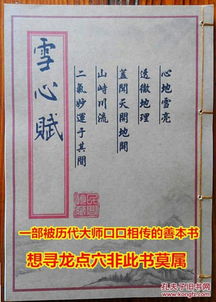 雪心賦
心地雪亮
透徹地理
蓋聞天開地闢
山峙川流
二氣妙運于其間
一部被历代大师口口相传的善本书
想寻龙点穴非此书莫属